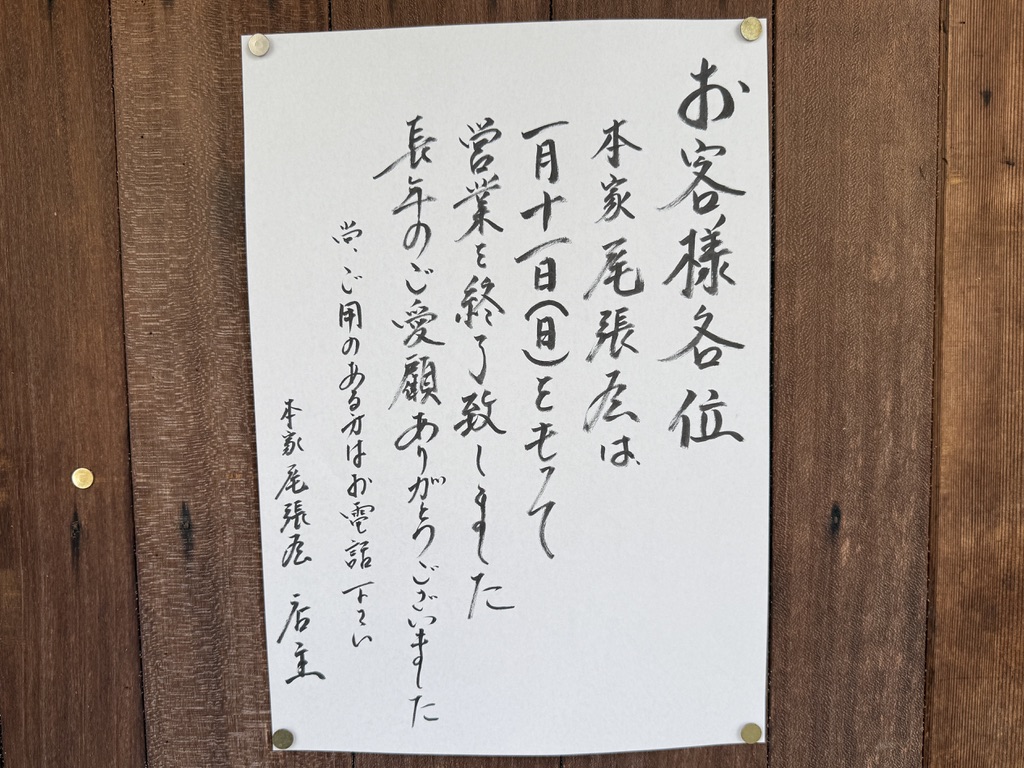 お客様各位
本家尾張屋は、
一月十一日(日)をもって
営業を終了致しました
長年のご愛顧ありがとうございました
尚、ご用のある方はお電話下さい
本家尾張屋 店主